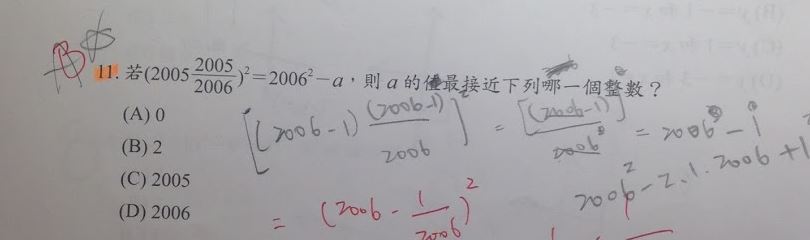 B
11. 若(2005 2005/2006)²=2006²−a，則 a 的值最接近下列哪一個整數？
(A) 0
[(2006-1) (2006-1)/2006]² = [(2006-1)²/2006]² = 2006² - 1
(B) 2
2006² - 2.1.2006 + 1
(C) 2005
(D) 2006
= (2006 - 1/2006)²